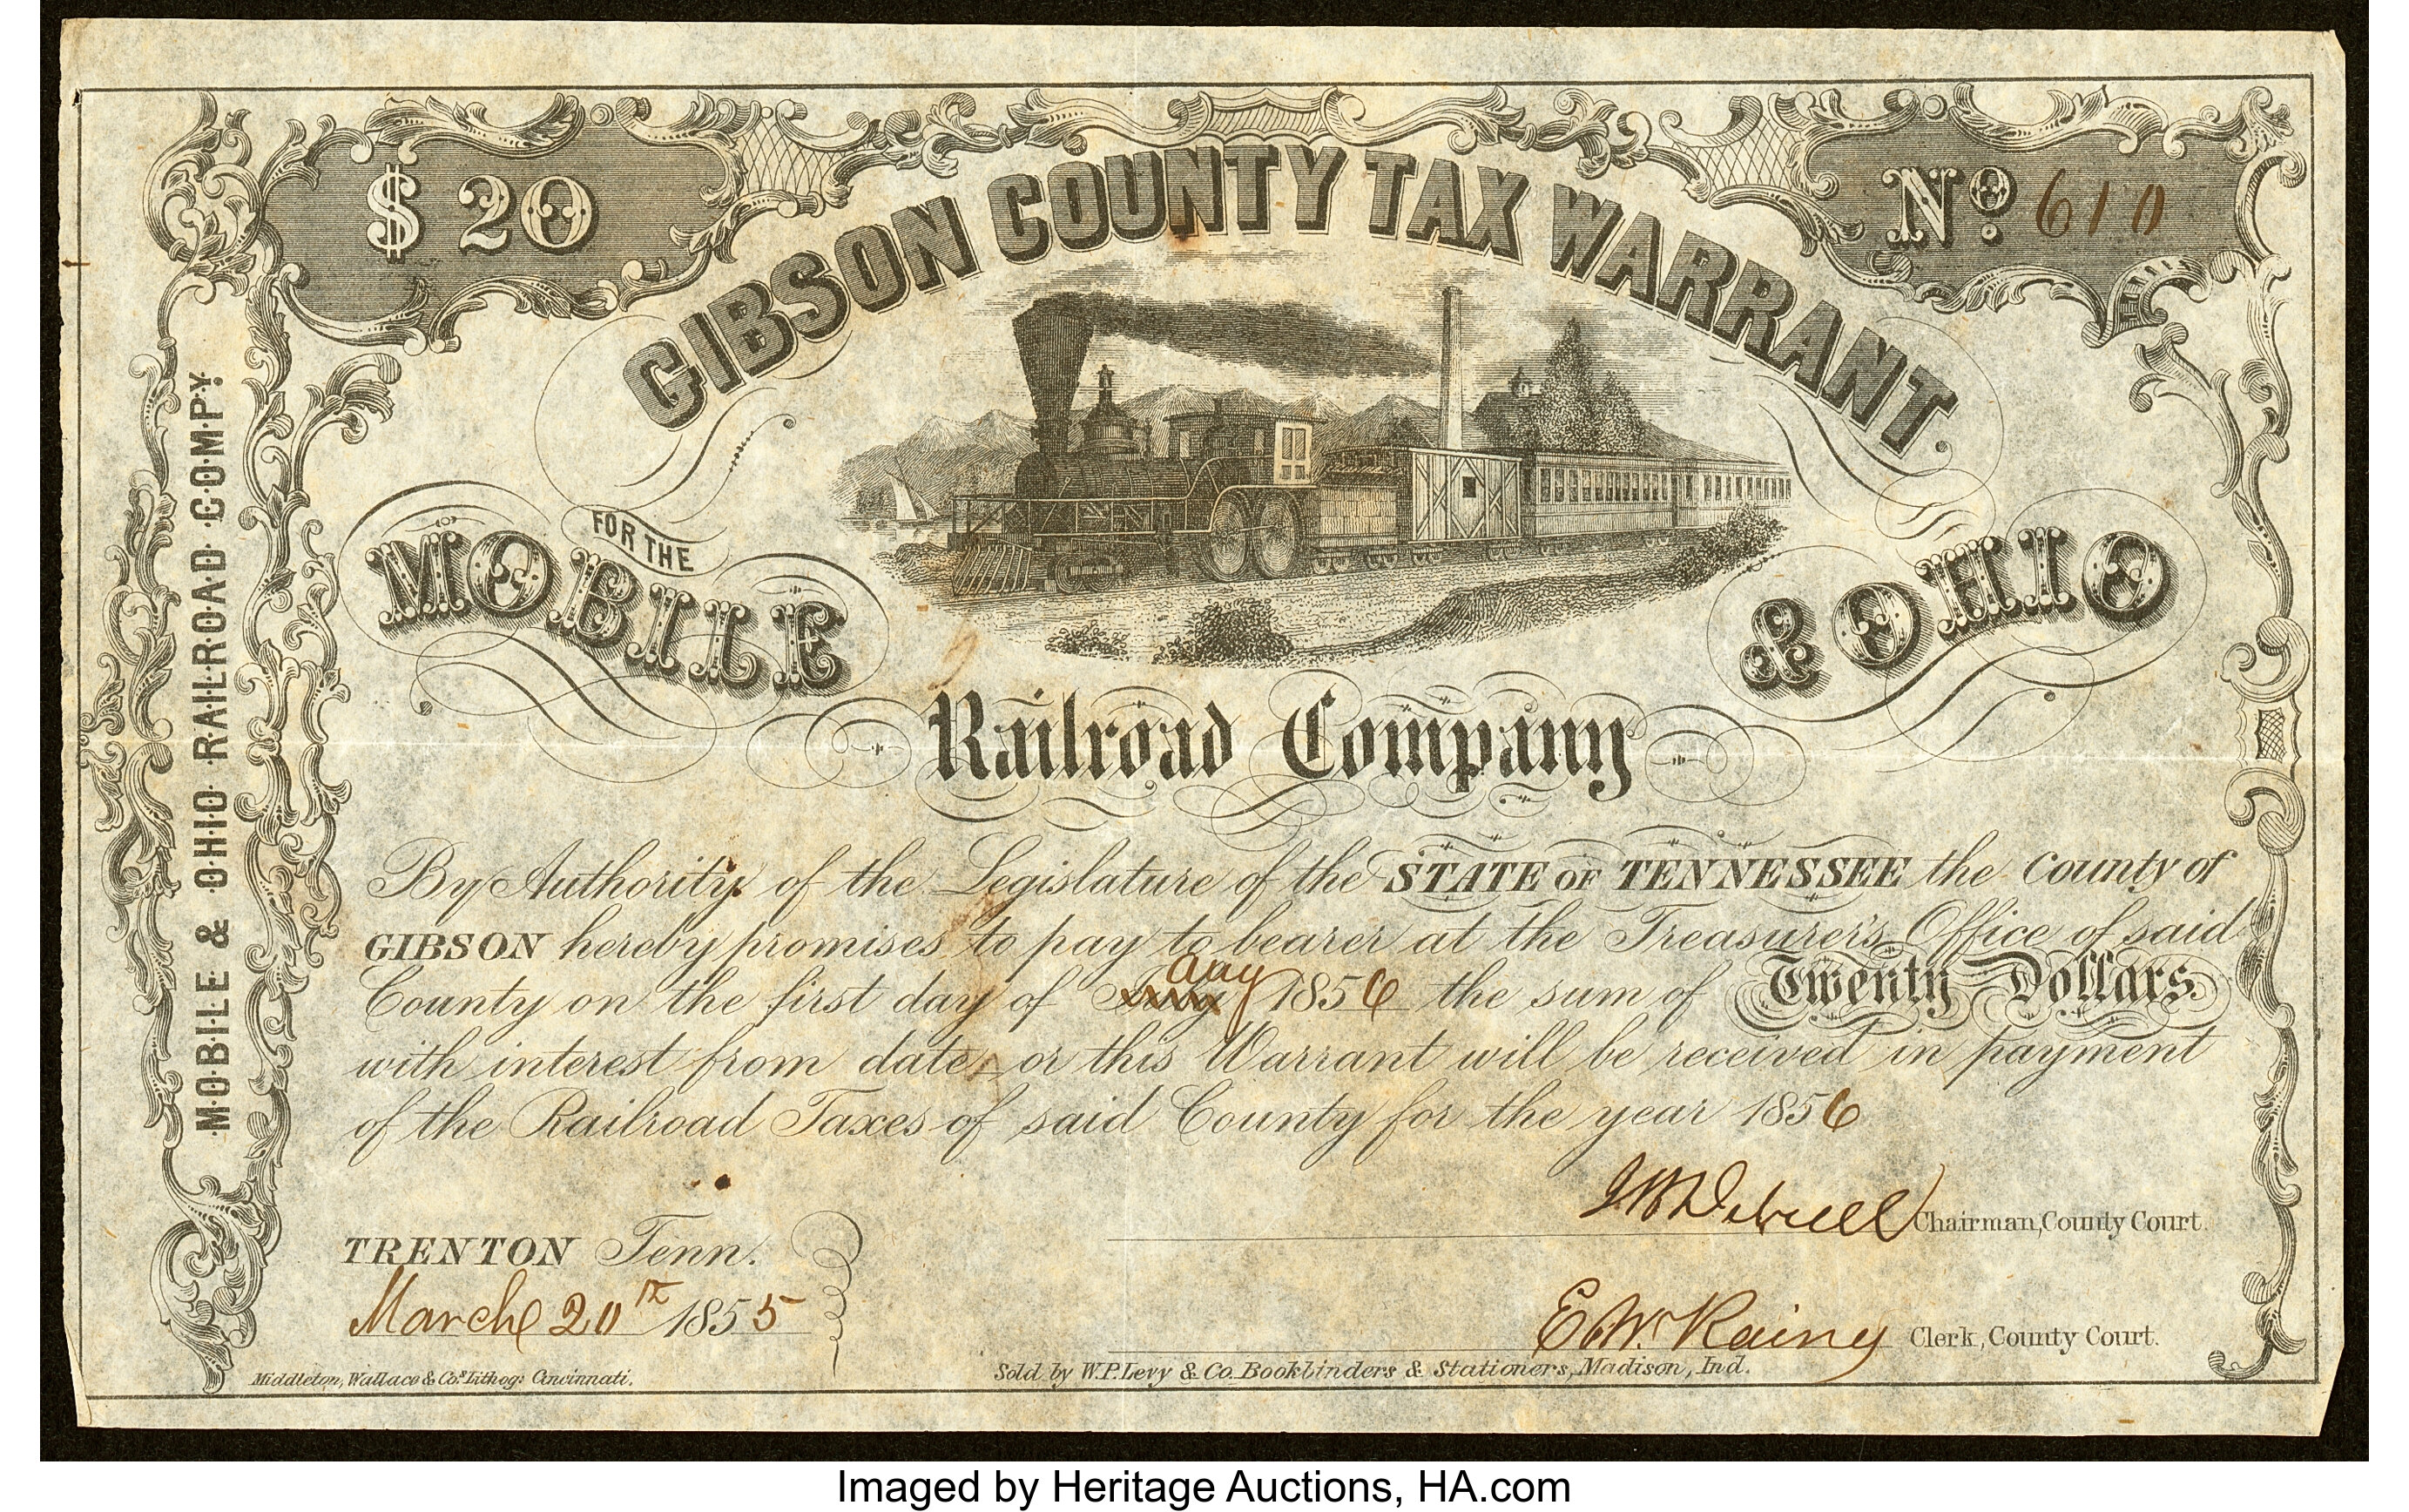 $ 20
GIBSON COUNTY TAX WARRANT.
Nº 610
FOR THE
MOBILE & OHIO
Railroad Company
MOBILE & OHIO RAILROAD COMPY.
By Authority of the Legislature of the STATE OF TENNESSEE the County of
GIBSON hereby promises to pay to bearer at the Treasurer's Office of said
County on the first day of July Aug 1856 the sum of Twenty Dollars
with interest from date, or this Warrant will be received in payment
of the Railroad Taxes of said County for the year 1856
Chairman, County Court.
TRENTON Tenn.
March 20th 1855
E. W. Rainey Clerk, County Court.
Middleton, Wallace & Co. Lithog: Cincinnati.
Sold by W.P. Levy & Co. Bookbinders & Stationers, Madison, Ind.
Imaged by Heritage Auctions, HA.com